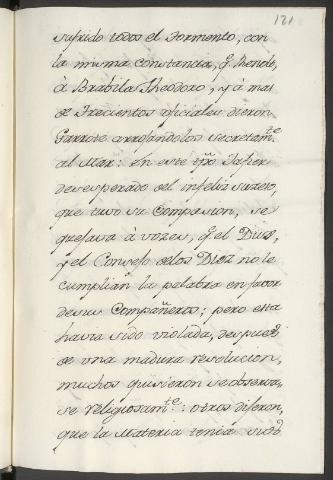 121
sufrido todos el Tormento, con
la misma constancia, q.
à Brabila Theodoro, y à mas
de Trecientos oficiales dieron
Garrote arrojandolos secretam.te
al Mar: en este tpo Jafier
desesperado del infeliz suceso,
que tuvo su Compasion, se
quejava à vozes, q. el Dux,
y el Consejo delos Diez no le
cumplian la palabra en favor
desus Compañeros; pero esta
havia sido violada, despues
de una madura revolucion,
muchos quisieron se observa-
se religiosam.te: otros dijeron,
que la Materia tenia